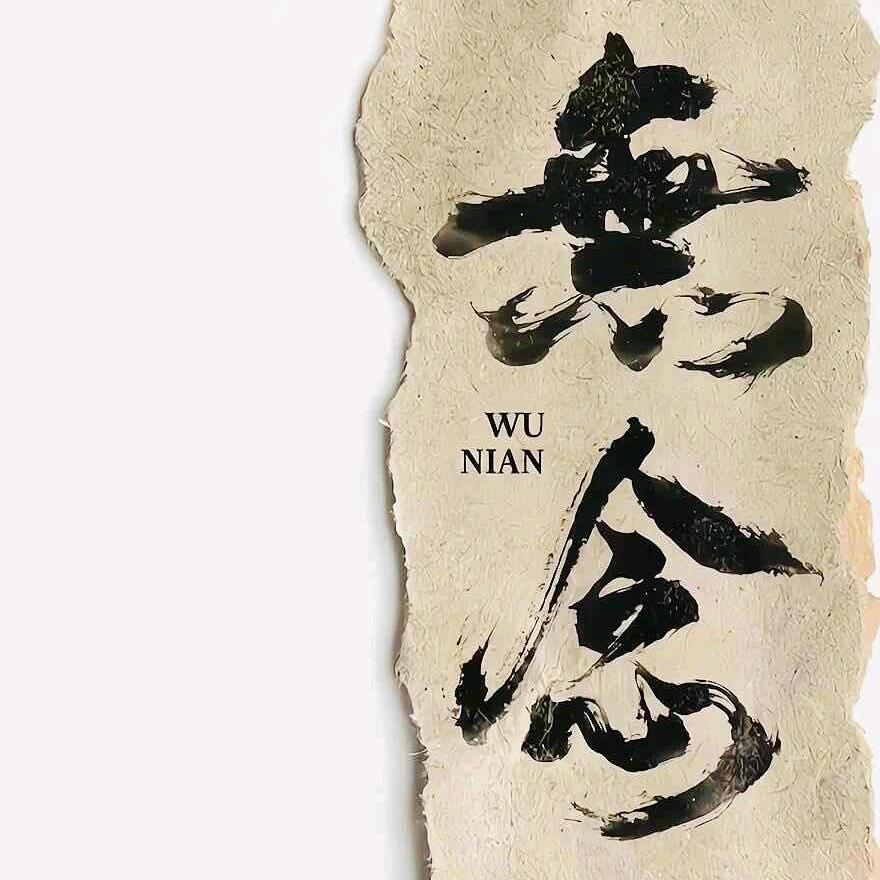 無念
WU
NIAN